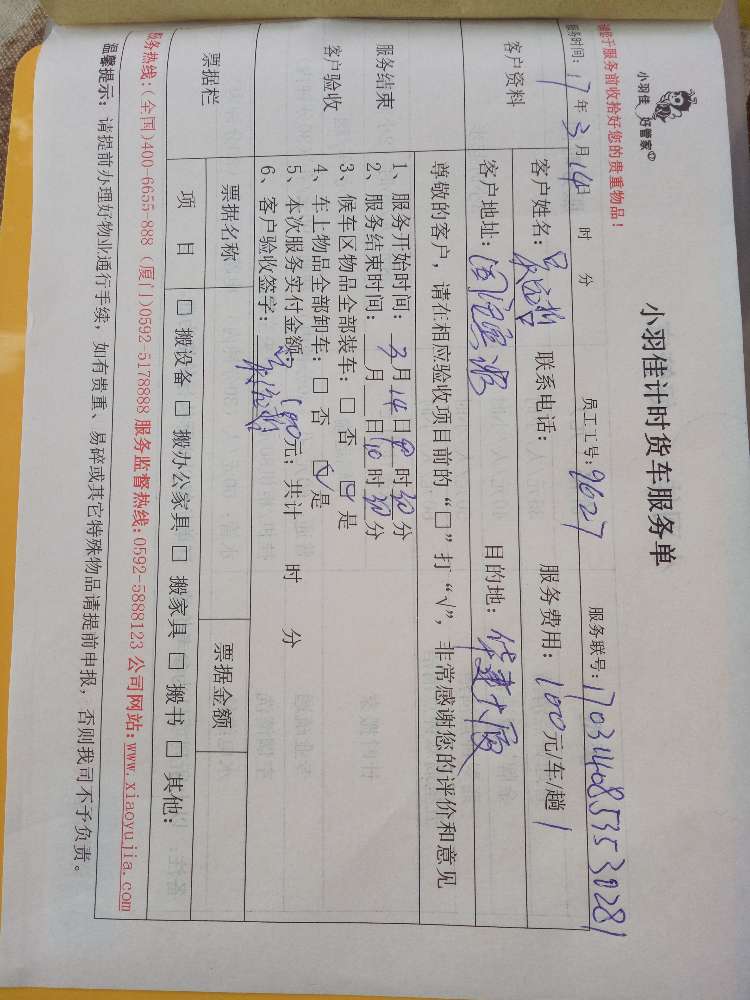 小羽佳 好管家
小羽佳计时货车服务单
请您于服务前收拾好您的贵重物品！
服务时间：17年3月14日 时 分 员工工号：9627 服务联号：1703140853530281
客户资料
客户姓名： 联系电话： 服务费用：100元/车/趟
客户地址： 目的地：华建大厦
尊敬的客户，请在相应验收项目前的“□”打“√”，非常感谢您的评价和意见
服务结束
客户验收
1、服务开始时间：3月14日9时30分
2、服务结束时间： 月 日10时30分
3、候车区物品全部装车：□ 否 ☑ 是
4、车上物品全部卸车：□ 否 ☑ 是
5、本次服务实付金额：100元；共计 时 分
6、客户验收签字：
票据栏 票据名称 票据金额
项 目 □ 搬设备 □ 搬办公家具 □ 搬家具 □ 搬书 □ 其他：
服务热线：(全国)400-6655-888 (厦门)0592-5178888 服务监督热线:0592-5888123 公司网站:www.xiaoyujia.com
温馨提示：请提前办理好物业通行手续，如有贵重、易碎或其它特殊物品请提前申报，否则我司不予负责。